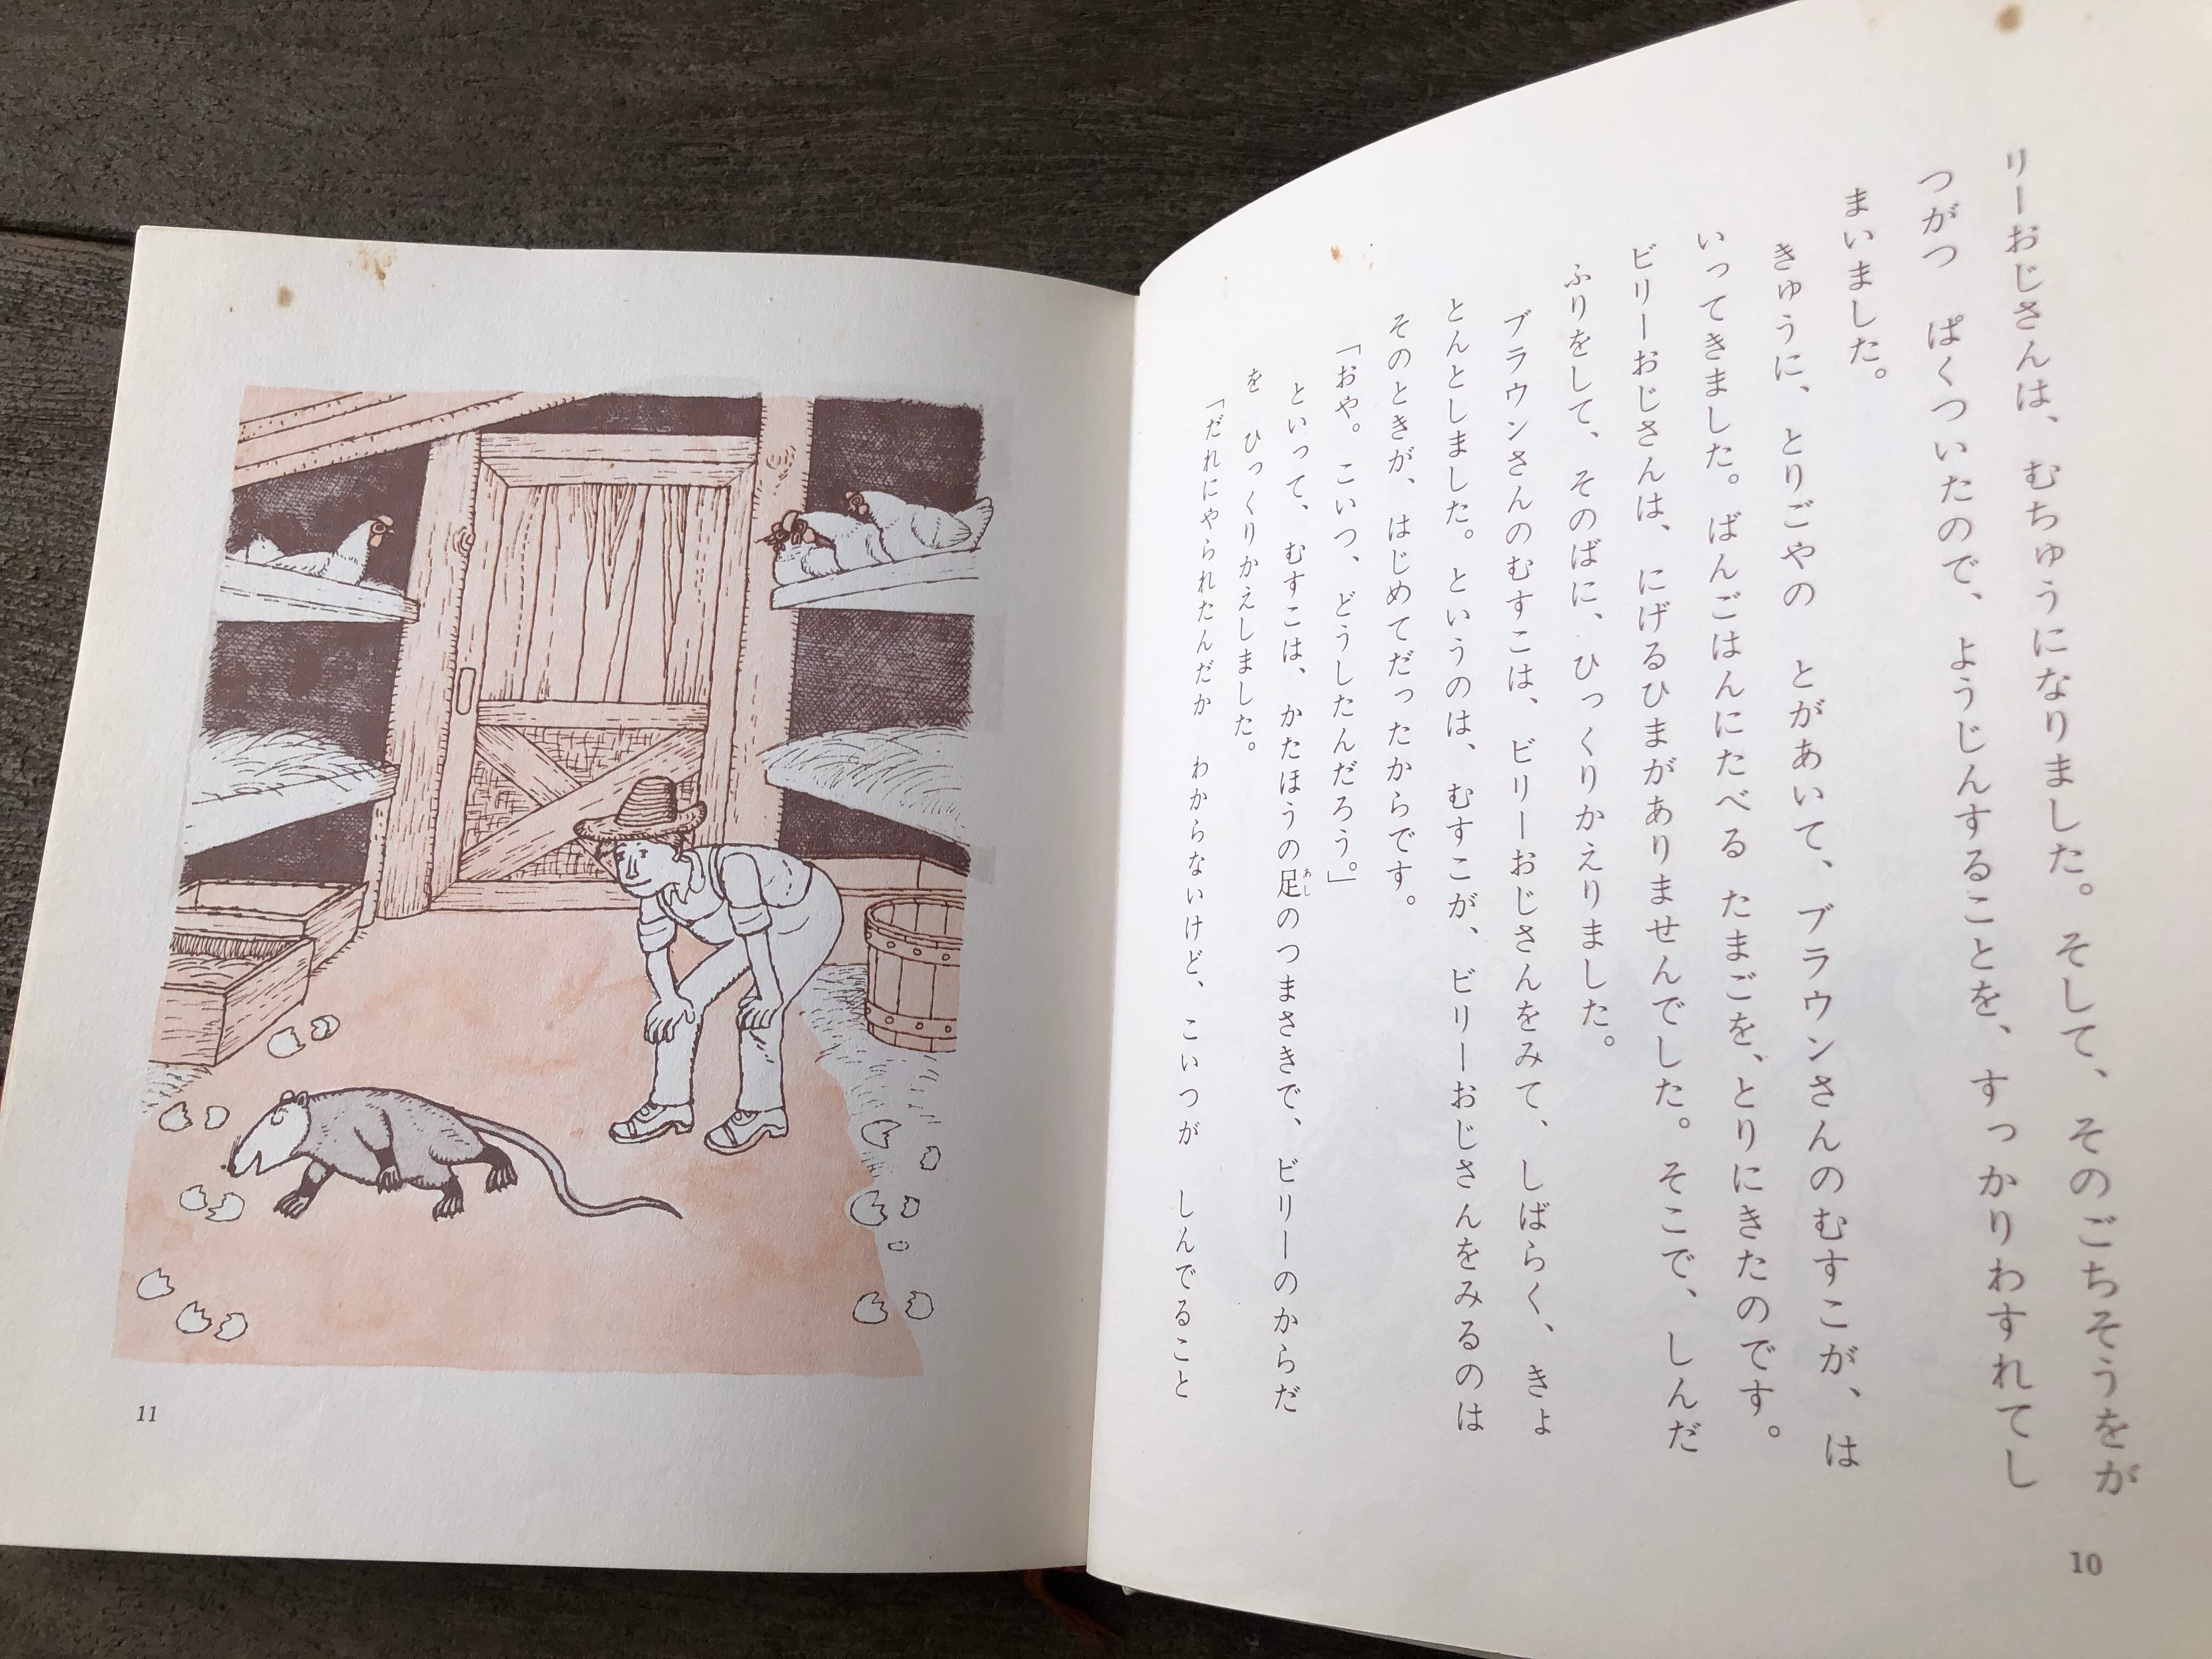 リーおじさんは、むちゅうになりました。そして、そのごちそうをが
つがつ　ぱくついたので、ようじんすることを、すっかりわすれてし
まいました。
きゅうに、とりごやの　とがあいて、ブラウンさんのむすこが、は
いってきました。ばんごはんにたべる　たまごを、とりにきたのです。
ビリーおじさんは、にげるひまがありませんでした。そこで、しんだ
ふりをして、そのばに、ひっくりかえりました。
ブラウンさんのむすこは、ビリーおじさんをみて、しばらく、きょ
とんとしました。というのは、むすこが、ビリーおじさんをみるのは
そのときが、はじめてだったからです。
「おや。こいつ、どうしたんだろう。」
といって、むすこは、かたほうの足のつまさきで、ビリーのからだ
あし
を　ひっくりかえしました。
「だれにやられたんだか　わからないけど、こいつが　しんでること
10
11